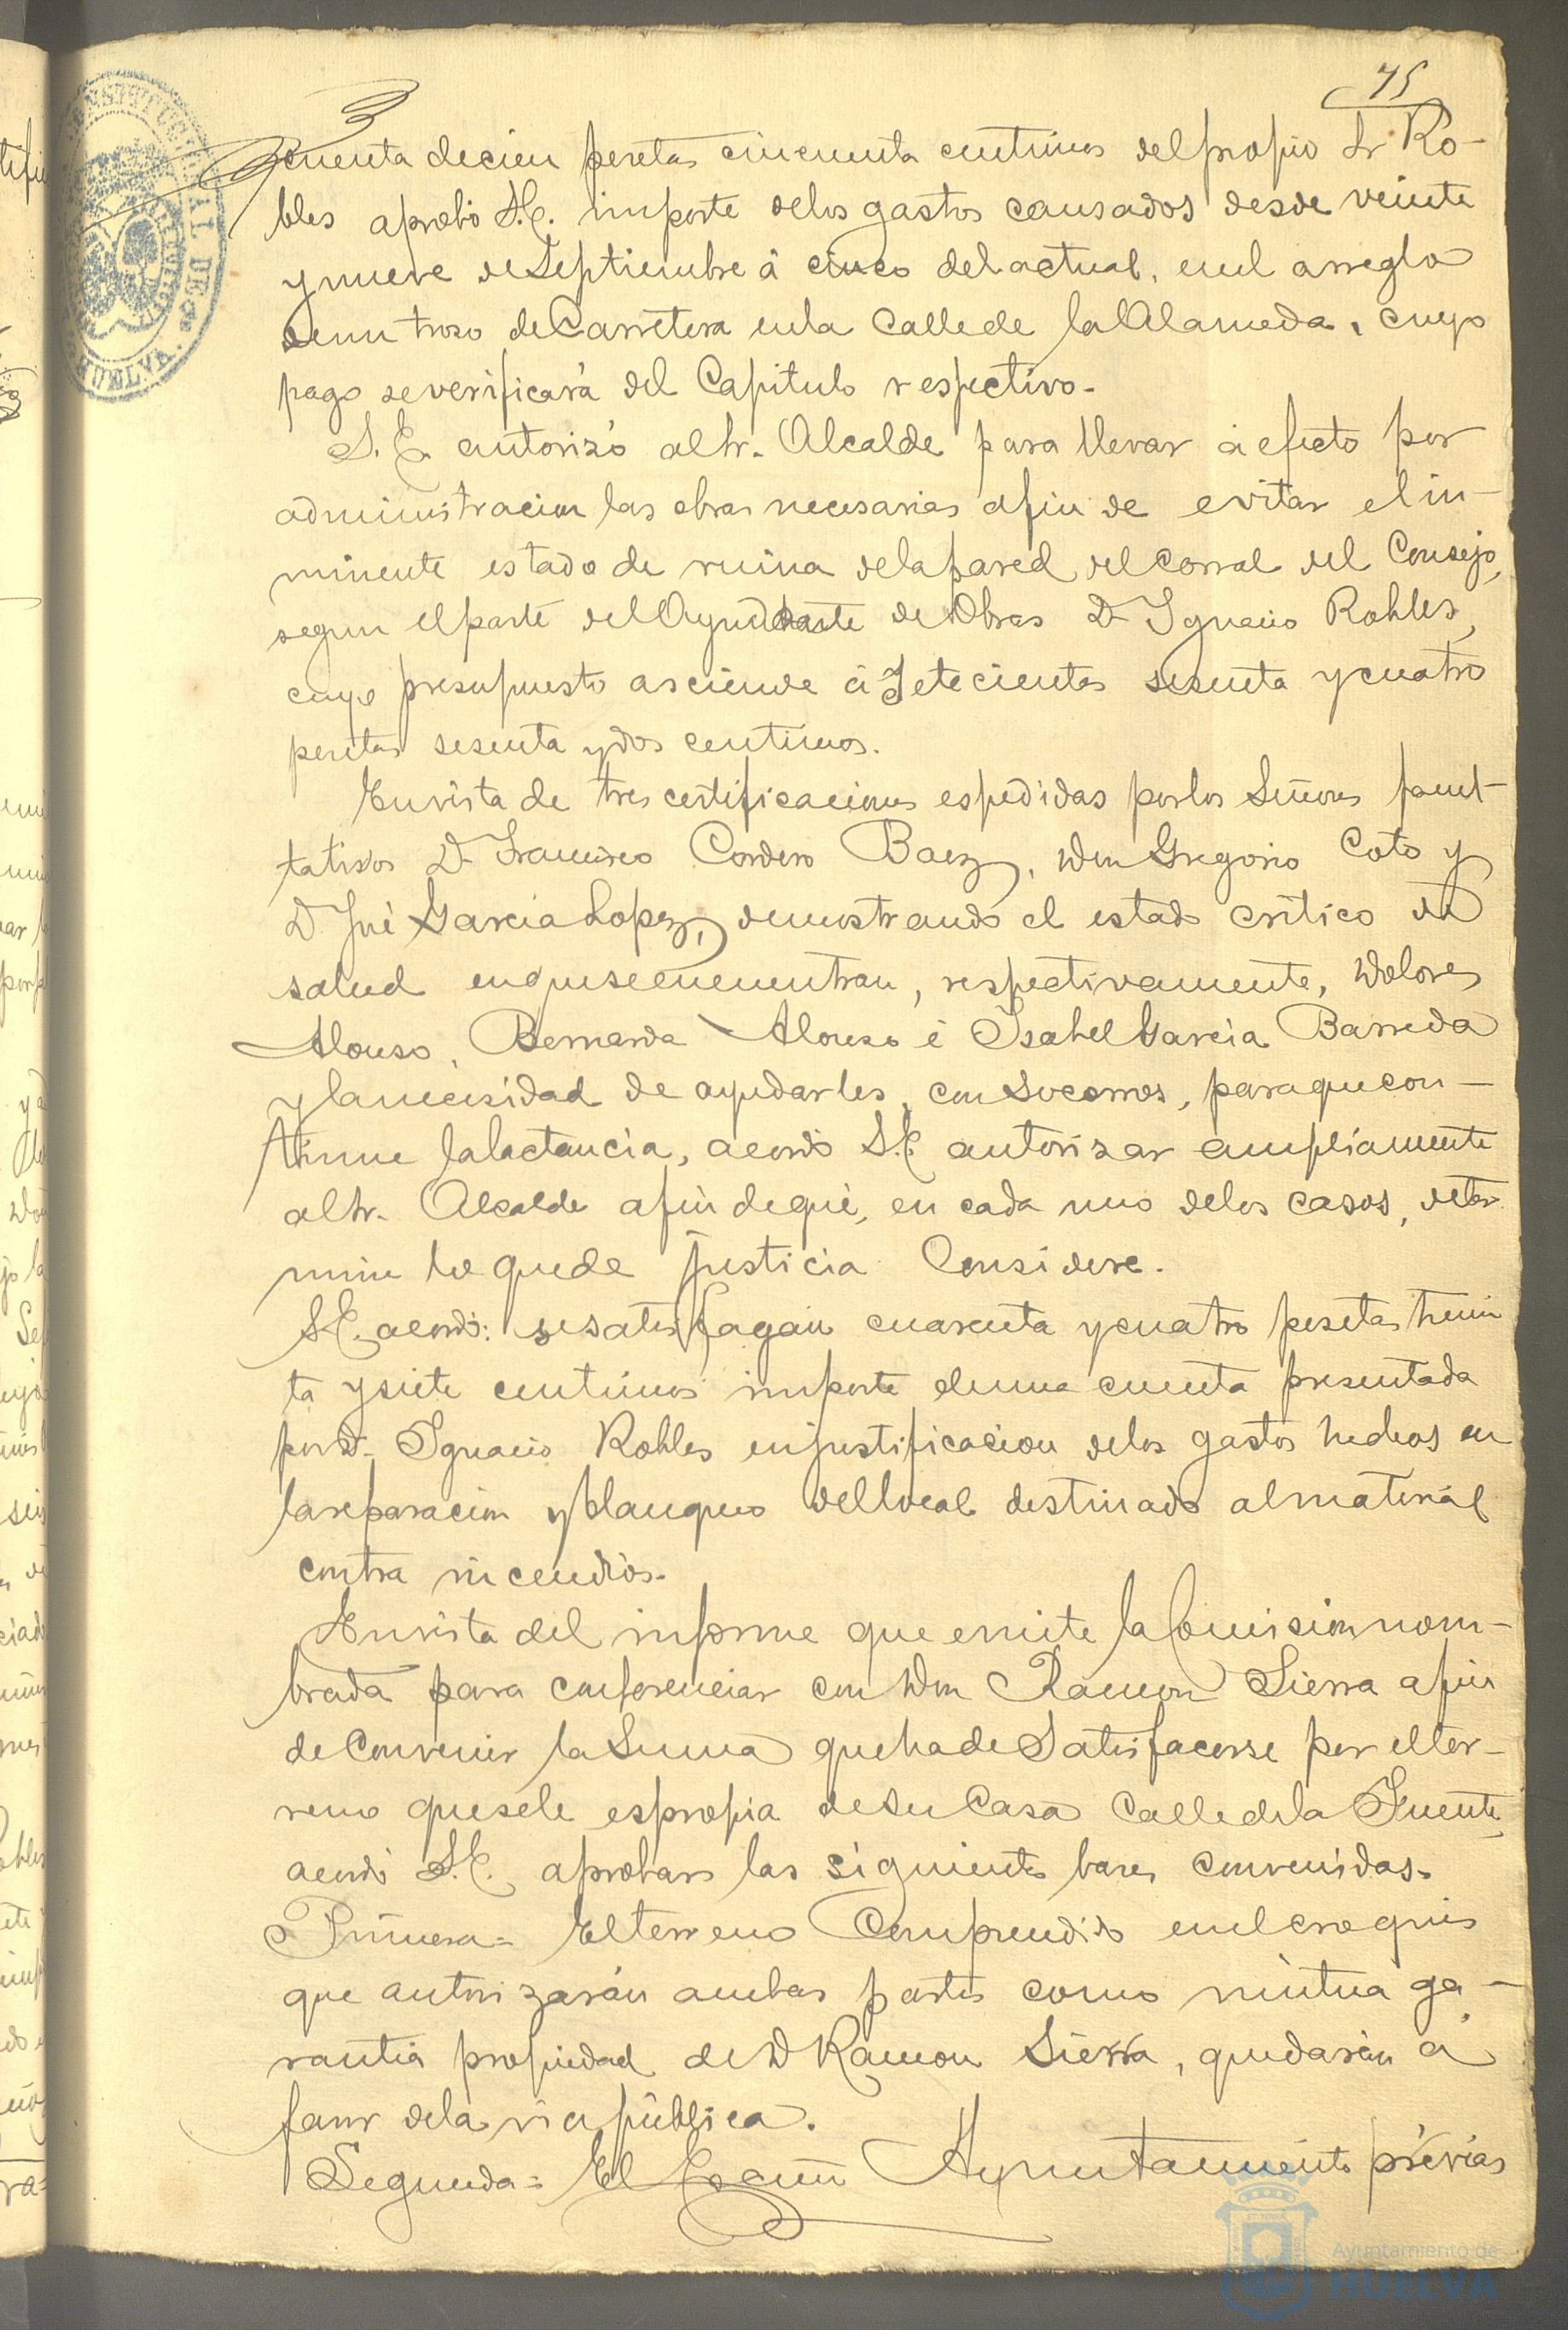 75
cuenta de cien pesetas cincuenta centimos del propio Sr Ro-
bles aprobó S.E. importe delos gastos causados desde veinte
y nueve de Septiembre á cinco del actual, enel arreglo
deun trozo de Carretera enla Calle de la Alameda, cuyo
pago se verificará del Capitulo respectivo-
S. E. autorizó al Sr. Alcalde para llevar á efecto por
administracion las obras necesarias afin de evitar el in-
minente estado de ruina dela pared del corral del Consejo,
segun el parte del Ayudante de Obras D. Ignacio Robles,
cuyo presupuesto asciende á Setecientas sesenta y cuatro
pesetas sesenta y dos centimos.
En vista de tres certificaciones espedidas por los Señores facul-
tativos D. Francisco Cordero Baez, Don Gregorio Coto y
D. José Garcia Lopez, demostrando el estado crítico de
salud enque se encuentran, respectivamente, Dolores
Alonso, Bernarda Alonso é Isabel Garcia Barreda
y la necesidad de ayudarles, con Socorros, para que con-
tinue la lactancia, acordó S.E. autorizar ampliamente
al Sr. Alcalde afin de que, en cada uno delos casos, deter
mine lo que de justicia Considere.
S.E. acordó: se satisfagan cuarenta y cuatro pesetas trein
ta y siete centimos importe deuna cuenta presentada
por D. Ignacio Robles en justificacion delos gastos hechos en
la reparacion y blanqueo del local destinado al material
contra incendios-
En vista del informe que emite la Comision nom-
brada para conferenciar con Don Ramon Sierra afin
de Convenir la Suma que ha de Satisfacerse por el ter-
reno que se le espropia de su Casa Calle dela Fuente,
acordó S.E. aprobar las siguientes bases convenidas-
Primera= El terreno Comprendido enel croquis
que autorizarán ambas partes como mútua ga-
rantia propiedad de D Ramon Sierra, quedarán á
favor dela via pública.
Segunda= El Excmo Ayuntamiento prévias
CONSTITUCIONAL DE
HUELVA.
Ayuntamiento de
HUELVA